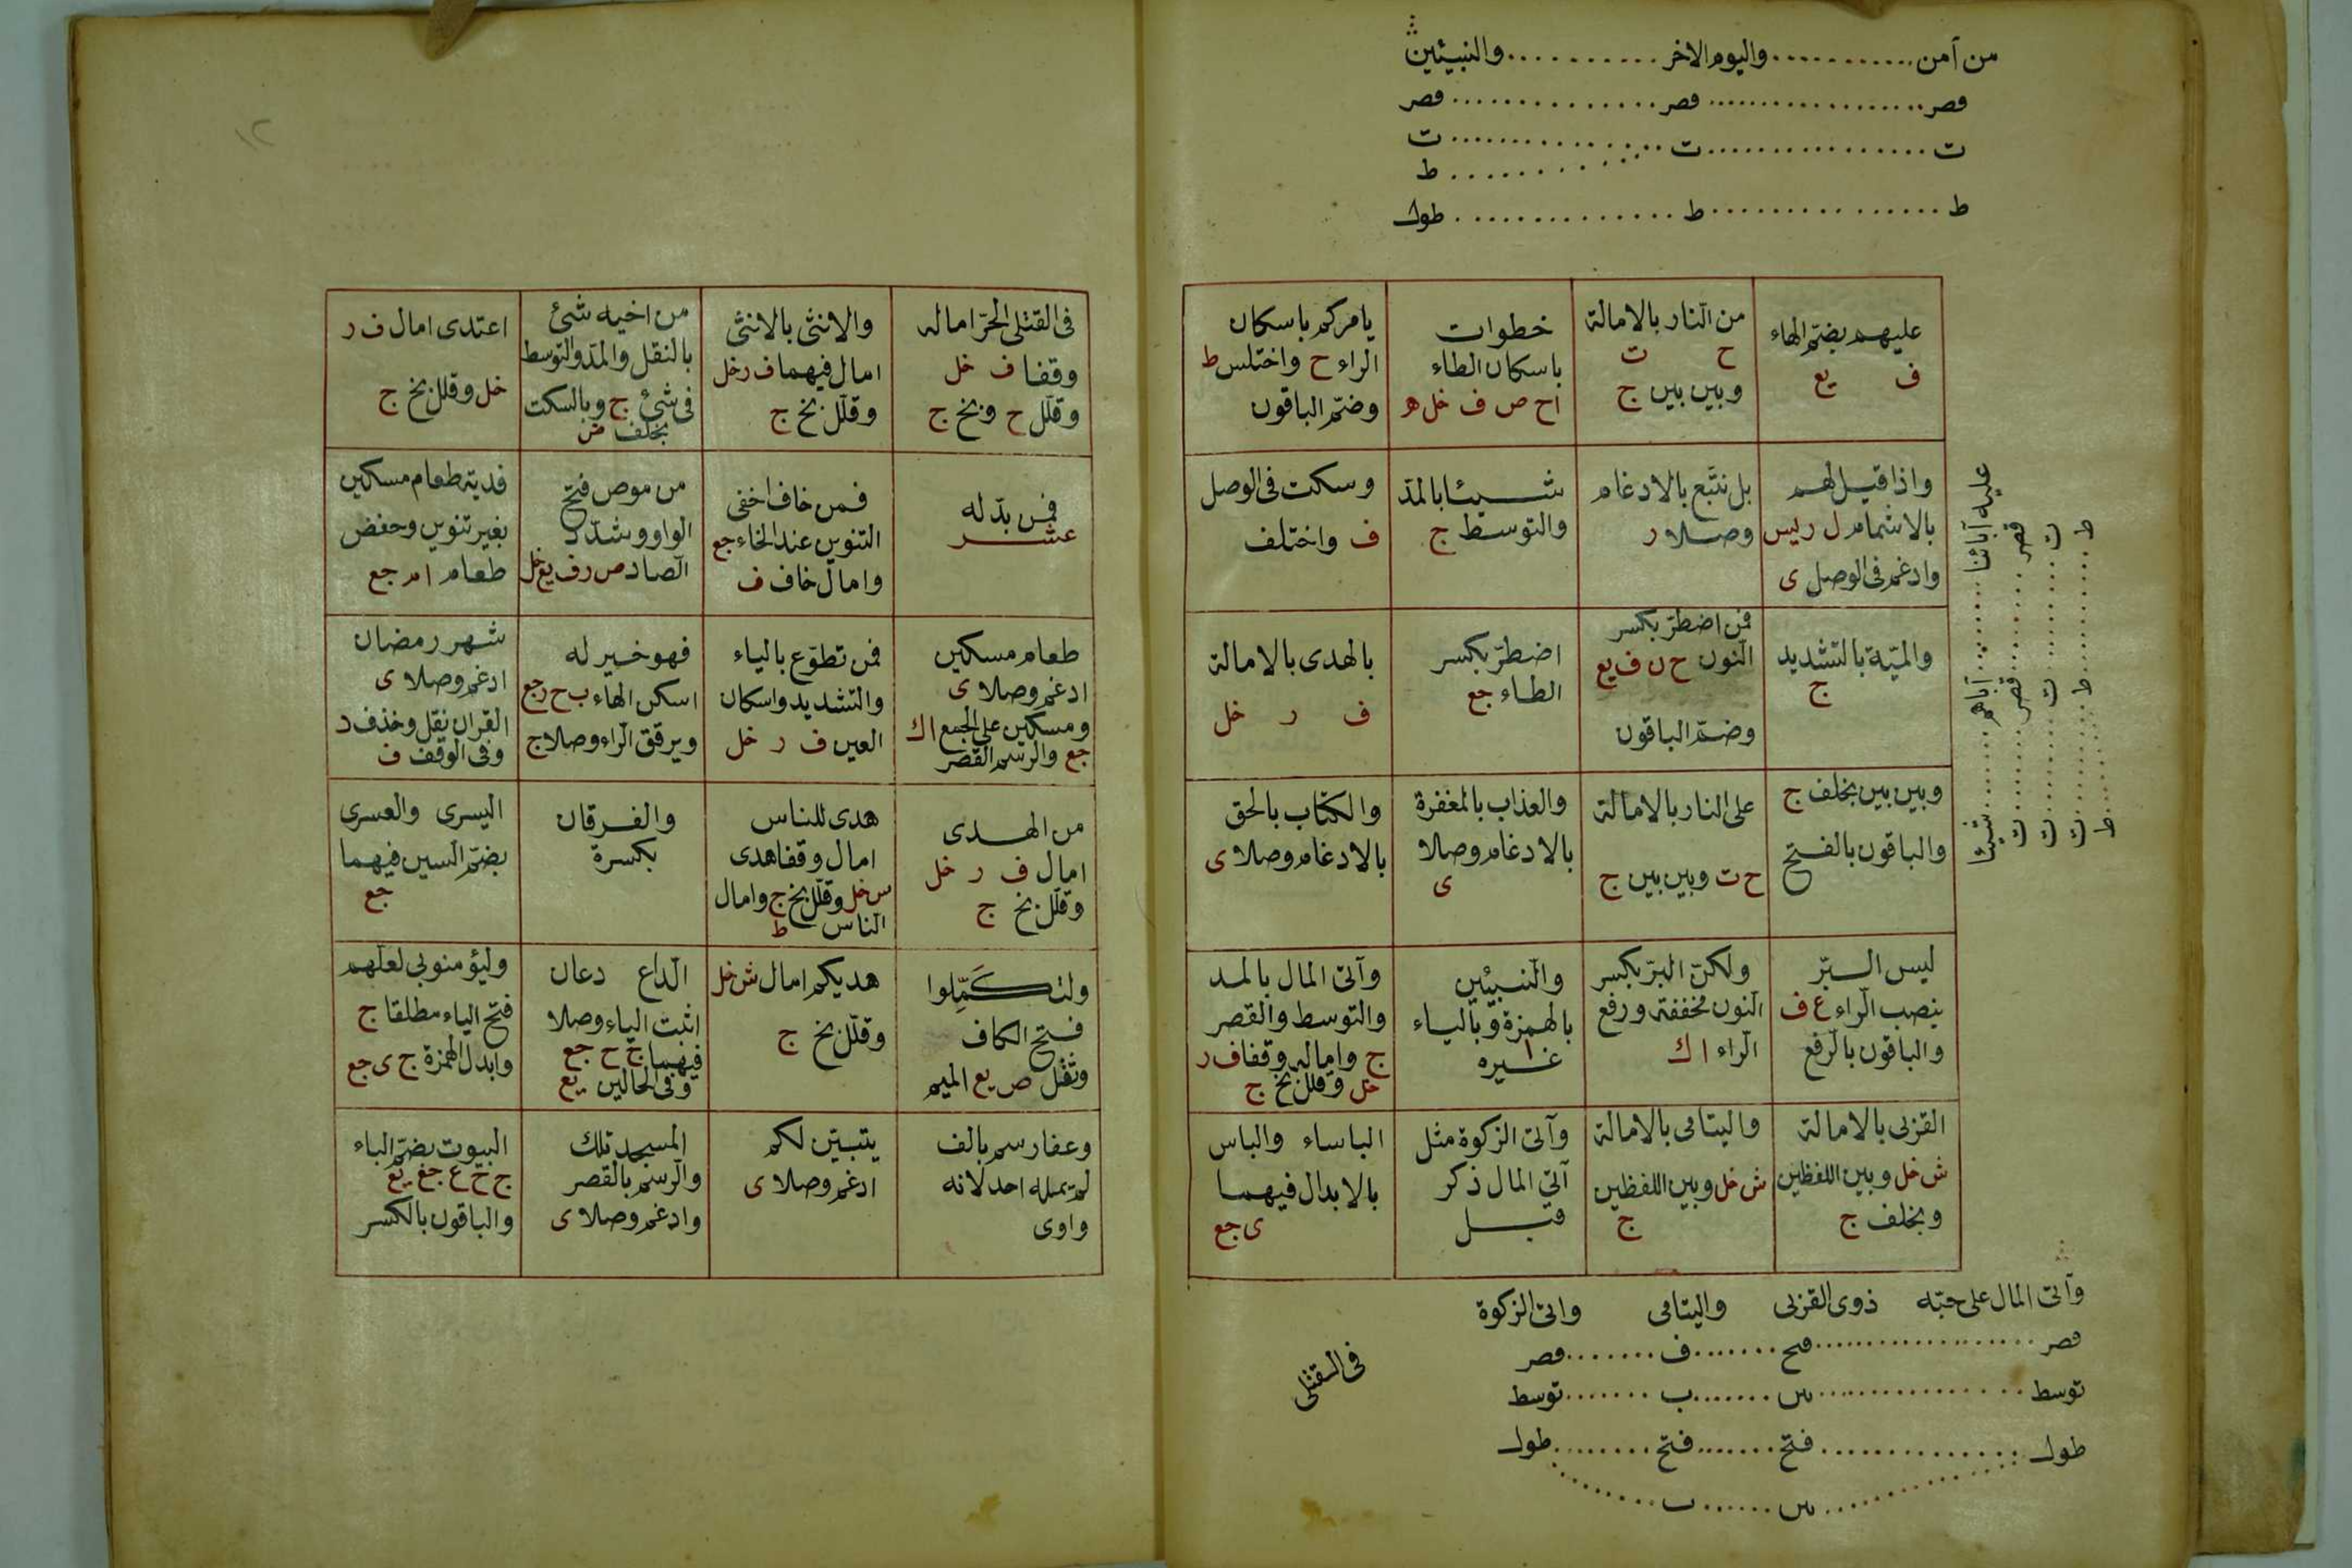 من آمن ........... واليوم الاخر ........... والنبيئين
قصر ........... قصر ........... قصر
ت ........... ت ........... ت
ط
ط ........... ط ........... طول
عليهم بضم الهاء
ف يع
من النار بالامالة
ح ت
وبين بين ج
خطوات
باسكان الطاء
ا ح ص ف خل ه
يامركم باسكان
الراء ح واختلس ط
وضم الباقون
واذا قيل لهم
بالاشمام ل ر يس
وادغم فى الوصل ى
بل نتبع بالادغام
وصلا ر
شيئا بالمد
والتوسط ج
وسكت فى الوصل
ف واختلف
والميتة بالتشديد
ج
فمن اضطر بكسر
النون ح ن ف يع
وضم الباقون
اضطر بكسر
الطاء جع
بالهدى بالامالة
ف ر خل
وبين بين بخلف ج
والباقون بالفتح
على النار بالامالة
ح ت وبين بين ج
والعذاب بالمغفرة
بالادغام وصلا
ى
والكتاب بالحق
بالادغام وصلا ى
ليس البر
بنصب الراء ع ف
والباقون بالرفع
ولكن البر بكسر
النون مخففة ورفع
الراء ا ك
والنبيئين
بالهمزة وبالياء
ا
غيره
وآتى المال بالمد
والتوسط والقصر
ج واماله وقفا ف ر
خل وقلل بخ ج
القربى بالامالة
ش خل وبين اللفظين
وبخلف ج
واليتامى بالامالة
ش خل وبين اللفظين
ج
وآتى الزكوة مثل
آتى المال ذكر
قبل
الباساء والباس
بالابدال فيهما
ى جع
عليه آبائنا ........ آباؤهم ........ شيئا
قصر ........ قصر ........ ت
ت ........ ت ........ ت
ط ........ ط ........ ت
ط
وآتى المال على حبه ذوى القربى واليتامى واتى الزكوة
قصر ........... فتح ........ ف ........ قصر
توسط ........... س ........ ب ........ توسط
طول ........... فتح ........ فتح ........ طول
س ........ ب
فى القتلى
١٢
فى القتلى الحر اماله
وقفا ف خل
وقلل ح وبخ ج
والانثى بالانثى
امال فيهما ف ر خل
وقلل بخ ج
من اخيه شئ
بالنقل والمد والتوسط
فى شئ ج وبالسكت
بخلف
اعتدى امال ف ر
خل وقلل بخ ج
فمن بدله
عشر
فمن خاف اخفى
التنوين عند الخاء جع
وامال خاف ف
من موص فتح
الواو وشدد
الصاد ص ر ف يع خل
فدية طعام مسكين
بغير تنوين وخفض
طعام ا م جع
طعام مسكين
ادغم وصلا ى
ومسكين على الجمع ا ك
جع والرسم القصر
فمن تطوع بالياء
والتشديد واسكان
العين ف ر خل
فهو خير له
اسكن الهاء ب ح ر جع
ويرقق الراء وصلا ج
شهر رمضان
ادغم وصلا ى
القران نقل وحذف د
وفى الوقف ف
من الهدى
امال ف ر خل
وقلل بخ ج
هدى للناس
امال وقفا هدى
س خل وقلل بخ ج وامال
الناس ط
والفرقان
بكسرة
اليسرى والعسرى
بضم السين فيهما
جع
ولتكملوا
فتح الكاف
وثقل ص يع الميم
هديكم امال ش خل
وقلل بخ ج
الداع دعان
اثبت الياء وصلا
فيهما ج ح جع
وفى الحالين يع
وليؤمنوا بى لعلهم
فتح الياء مطلقا ج
وابدل الهمزة ج ى جع
وعفا رسم بالف
لم يمله احد لانه
واوى
يتبين لكم
ادغم وصلا ى
المسجد تلك
والرسم بالقصر
وادغم وصلا ى
البيوت بضم الباء
ج ح ع جع يع
والباقون بالكسر